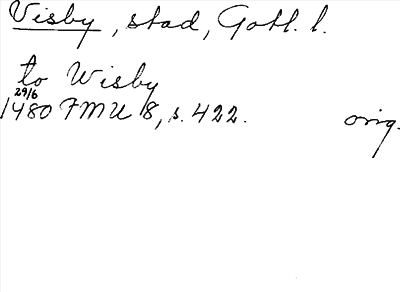 Visby, stad, Gotl. l.
to Wisby
29/6
1480 FMU 8, s. 422. orig.